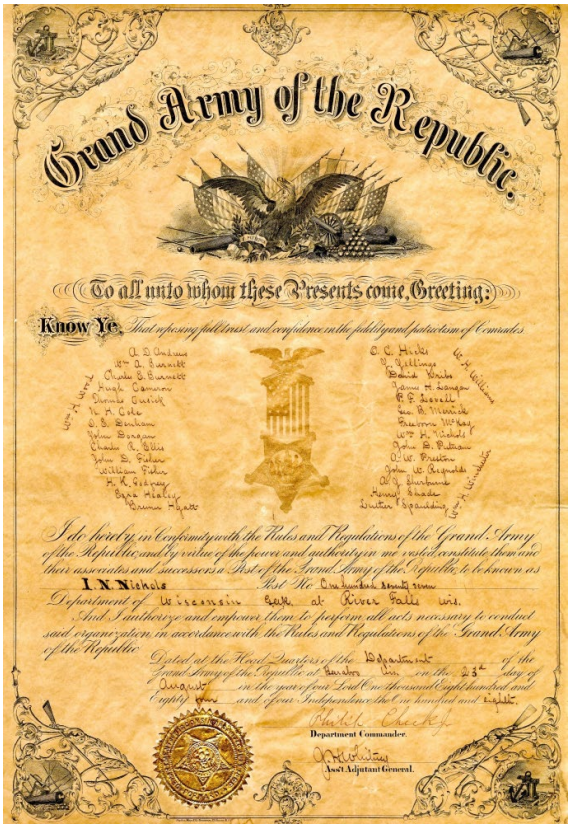 Grand Army of the Republic.
To all unto whom these Presents come, Greeting:
Know Ye, That reposing full trust and confidence in the fidelity and patriotism of Comrades
A. D. Andrews
Wm A. Burnett
Charles B. Burnett
Hugh Cameron
Thomas Cusick
N. H. Cole
O. S. Denham
John Dorgan
Charles R. Ellis
John D. Fisher
William Fisher
H. K. Gedney
Ezra Healey
Hyatt
Wm H. Wood
O. C. Hicks
J. Jellings
David
James H. Langan
P. F. Lovell
Geo. B. Merrick
McKay
Wm H. Nichols
John D. Putnam
A. W. Preston
John W. Reynolds
A. J. Sherburne
Henry Snade
Luther Spaulding
W. H. Williams
Wm H. Winchester
I do hereby, in Conformity with the Rules and Regulations of the Grand Army
of the Republic, and by virtue of the power and authority in me vested, constitute them and
their associates and successors a Post of the Grand Army of the Republic, to be known as
I. N. Nichols Post No One hundred seventy seven
Department of Wisconsin G.A.R. at River Falls Wis.
And I authorize and empower them to perform all acts necessary to conduct
said organization, in accordance with the Rules and Regulations of the Grand Army
of the Republic
Dated at the Head Quarters of the Department of the
Grand Army of the Republic at Baraboo Wis. on the 23d day of
August in the year of our Lord One thousand Eight hundred and
Eighty four and of our Independence the One hundred and eighth.
Philip Cheek Jr
Department Commander.
J H Whitney
Ass't Adjutant General.